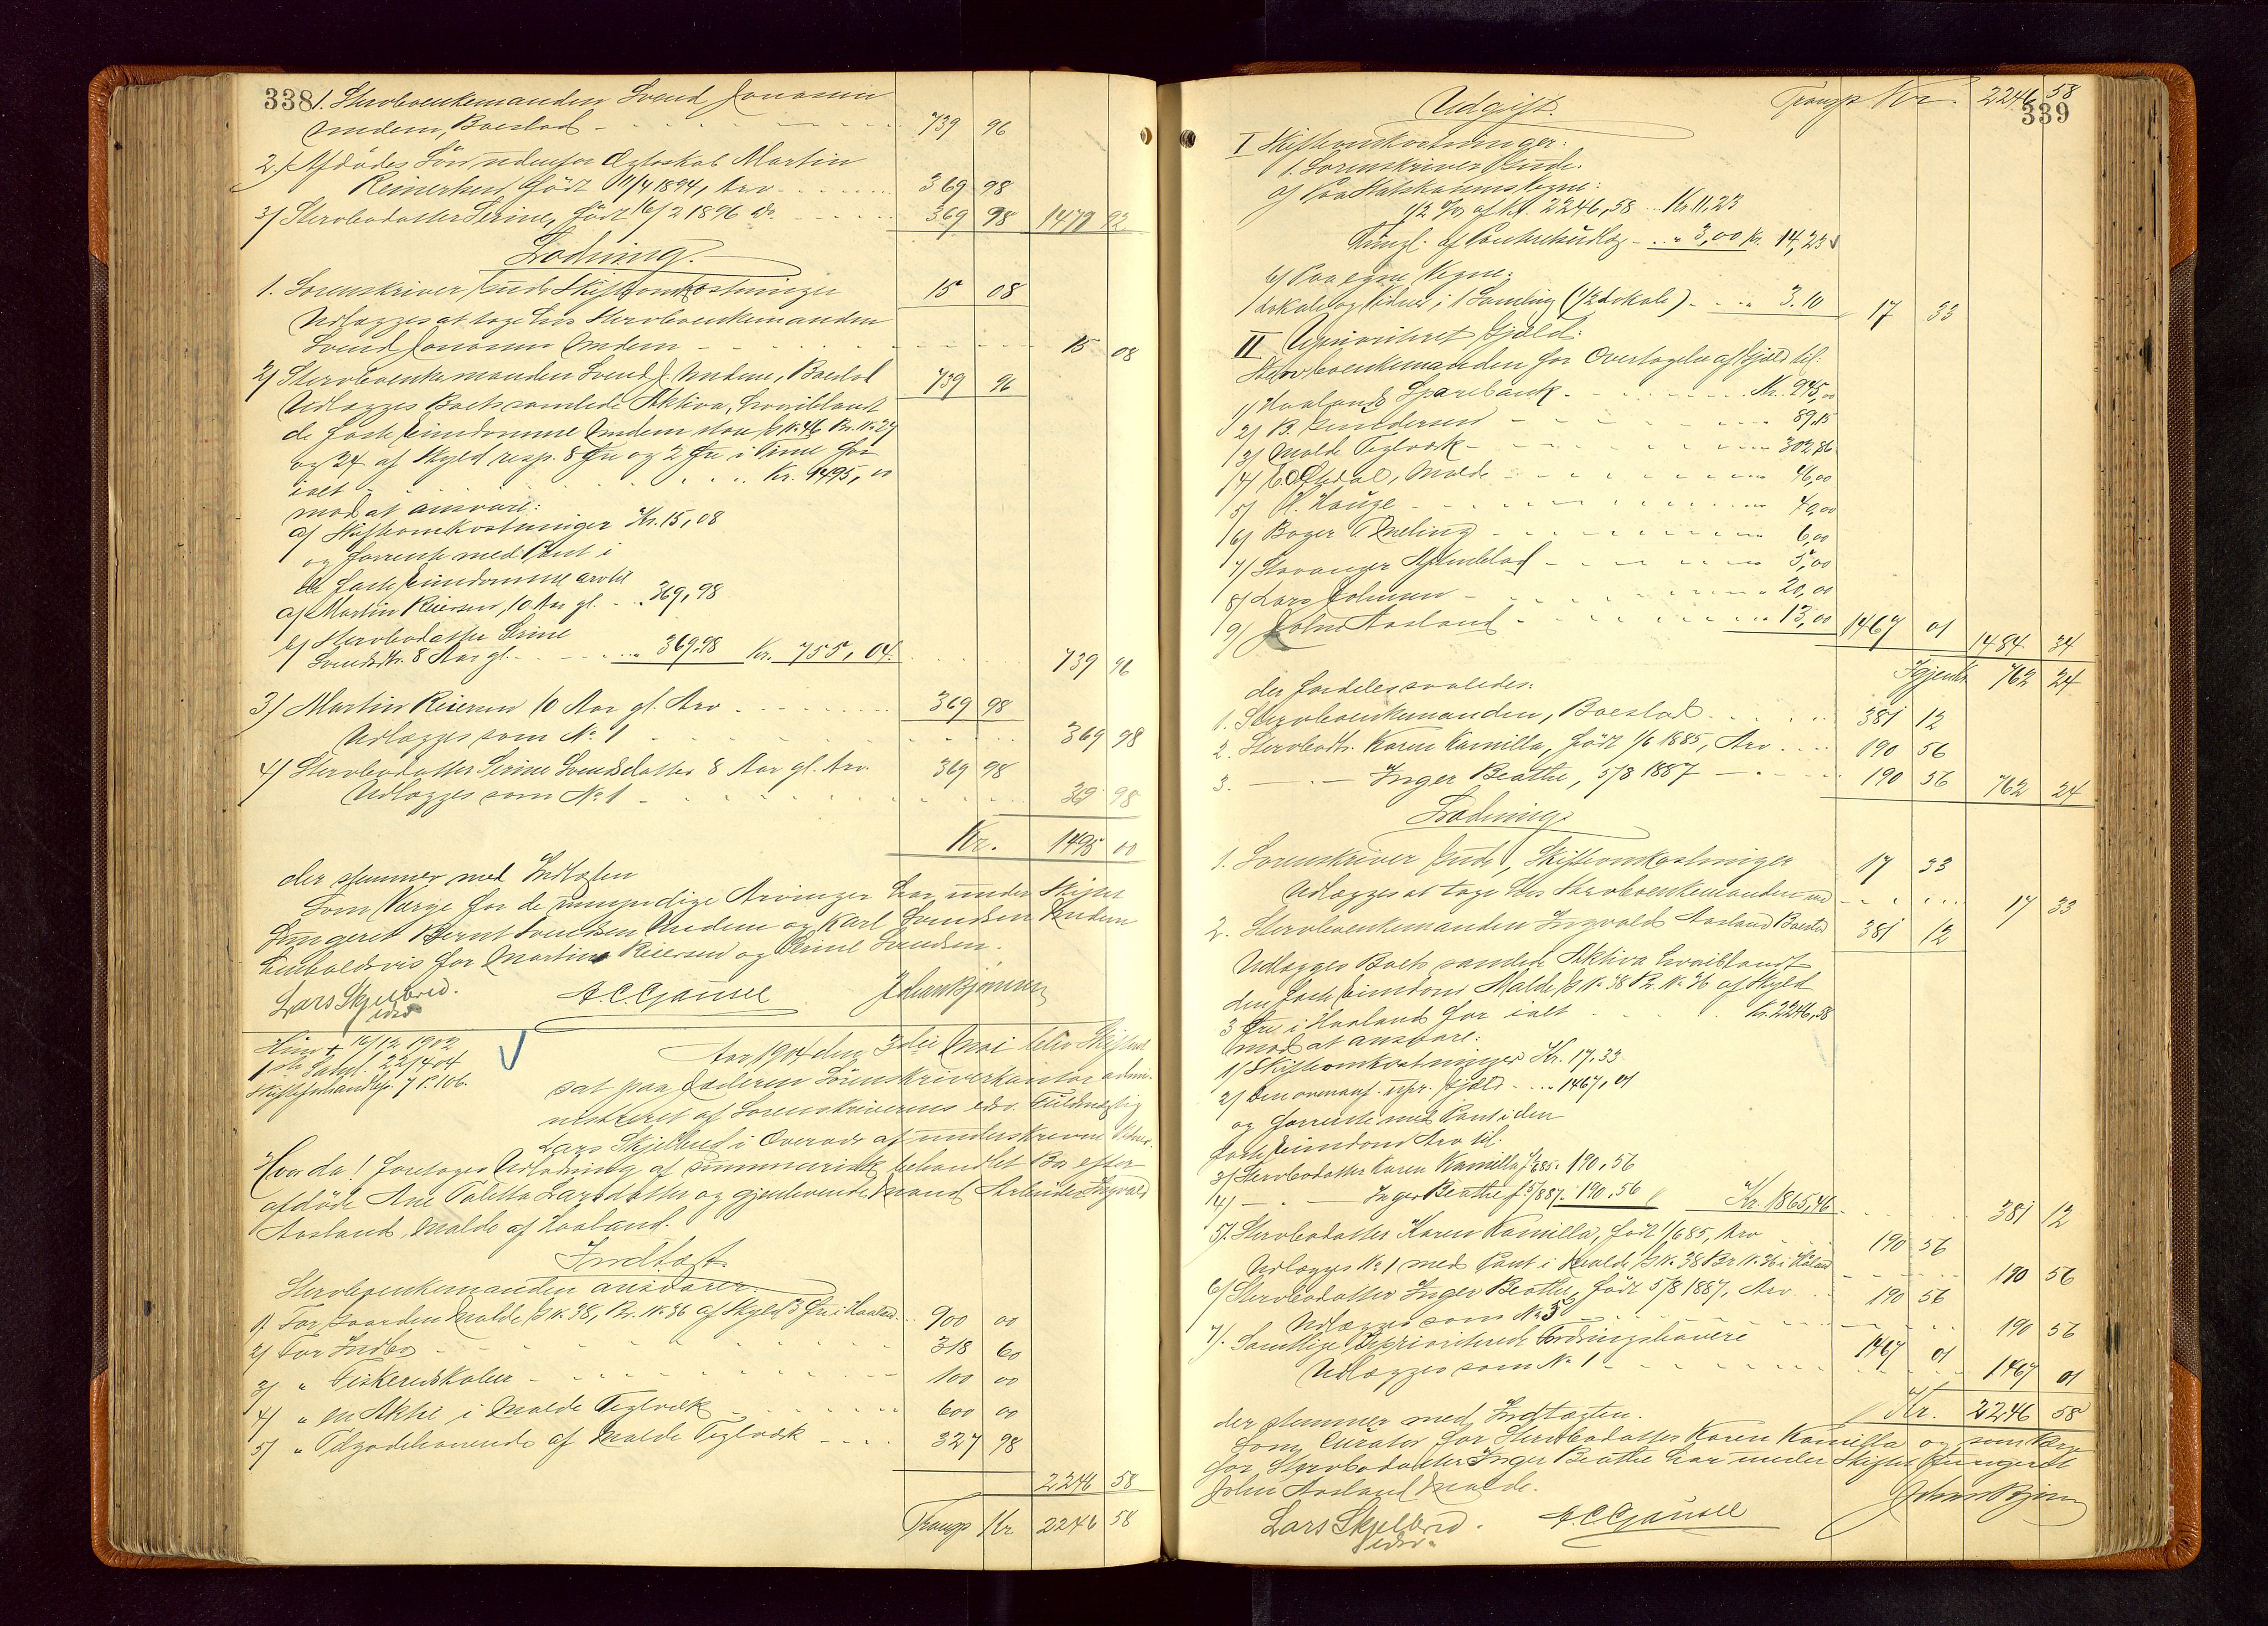 338
1. Stervboenkemanden Svend Jonassen
Undem, Boeslod - 739 96
2. Afdødes Søn udenfor Ægteskab Martin
Reinertsen, født 11/4 1894, Arv 369 98
3) Stervbodatter Serine, født 16/2 1896 do 369 98 1479 92
Lodning.
1. Sorenskriver Gude Skifteomkostninger 15 08
Udlægges at tage hos Stervboenkemanden
Svend Jonassen Undem - 15 08
2) Stervboenkemanden Svend J. Undem, Boeslod 739 96
Udlægges Boets samlede Aktiva, hvoriblandt
de faste Eiendomme Undem store G.No 46 Br.No 27
og 24 af Skyld resp. 8 Øre og 2 Øre i Time for
ialt - Kr. 1495,00
mod at ansvare:
a) Skifteomkostninger Kr. 15,08
og forrente med Pant i
de faste Eiendomme arv til
a) Martin Reiersen, 10 Aar gl. - 369,98
b) Stervbodatter Serine
Svendsdtr. 8 Aar gl. - 369,98 Kr. 755,04. 739 96
3) Martin Reiersen 10 Aar gl. Arv 369 98
Udlægges som No 1 369 98
4) Stervbodatter Serine Svendsdatter 8 Aar gl. Arv. 369 98
Udlægges som No 1 - 369 98
Kr. 1495 00
der stemmer med Indtægten
Som Værge for de umyndige Arvinger har under Skiftet
fungeret Bernt Svendsen Undem og Karl Svendsen Undem
henholdsvis for Martin Reiersen og Serine Svendsen.
Lars Skjelbred. A. C. Gausel Johan Bjørnsen
edsv
Hun + 16/12 1902
1ste Saml. 22/1 04
Skifteforhandlsp. 7 P. 106.
Aar 1904 den 3die Mai blev Skifteret
sat paa Jæderens Sorenskriverkontor admi-
nistreret af Sorenskriverens edsv. Fuldmægtig
Lars Skjelbred i Overvær af underskrevne Vidner.
Hvor da! foretoges Udlodning af summarisk behandlet Bo efter
afdøde Ane Taletta Larsdatter og gjenlevende Mand Arbeider Ingvald
Aasland, Malde af Haaland.
Indtægt
Stervboenkemanden ansvarer:
1) For Gaarden Malde G.No 38, Br. No 36 af Skyld 3 Øre i Haaland. 900 00
2) For Indbo - 318 60
3) " Fiskeredskaber - 100 00
4) " en Aktie i Malde Teglværk 600 00
5) " Tilgodehavende af Malde Teglværk 327 98
2246 58
Transp. Kr 2246 58
339
Udgift. Transp Kr. 2246 58
I Skifteomkostninger:
1. Sorenskriver Gude.
a) Paa Statskassens Vegne:
1/2 % af Kr. 2246,58 Kr 11,23
Tingl. af Panteretsudlæg - " 3,00 Kr. 14,23
b) Paa egne Vegne:
Lokale og Vidner i 1 Samling (1/2 Lokale) " 3.10 17 33
II Uprioriteret Gjæld:
Stervboenkemanden for Overtagelse af Gjæld til:
1) Haaland Sparebank - Kr. 945,00
2) B. Gundersen - 89,15
3) Malde Teglværk - 302,86
4) Malde - 46,00
5) H. Hauge - 40,00
6) Boger Meling - 6,00
7) Stavanger Aftenblad - 5,00
8) Lars Johnsen - 20,00
9) John Aasland - 13,00 1467 01 1484 34
Igjen Kr 762 24
der fordeles saaledes:
1. Stervboenkemanden, Boeslod 381 12
2. Stervbodtr. Karen Kamilla, født 1/6 1885, Arv 190 56
3. — Inger Beathe, 5/8 1887 — 190 56 762 24
Lodning
1. Sorenskriver Gude, Skifteomkostninger 17 33
Udlægges at tage hos Stervboenkemanden 17 33
2. Stervboenkemanden Ingvald Aasland Boeslod 381 12
Udlægges Boets samlede Aktiva hvoriblandt
den faste Eiendom Malde, G.No 38 Br. No 36 af Skyld
3 Øre i Haaland for ialt Kr. 2246,58
mod at ansvare:
1) Skifteomkostninger Kr. 17.33
2) Den ovenanf. upr. Gjæld - 1467,01
og forrente med Pant i den
faste Eiendom Arv til:
3) Stervbodatter Karen Kamilla f. 1/6 85. 190,56
4) — Inger Beathe f. 5/8 87. 190,56 Kr. 1865,46 381 12
5). Stervbodatter Karen Kamilla, født 1/6 85, Arv 190 56
Udlægges No 1 med Pant i Malde G.No 38 Br No 36 i Håland 190 56
6) Stervbodatter Inger Beathe, født 5/8 1887, Arv 190 56
Udlægges som No 5 190 56
7). Samtlige uprioriterede Fordringshavere 1467 01
Udlægges som No 1 - 1467 01
Kr. 2246 58
der stemmer med Indtægten.
Som Curator for Stervbodatter Karen Kamilla og som Værge
for Stervbodatter Inger Beathe har under Skiftet fungeret
John Aasland Malde.
Lars Skjelbred. A. C. Gausel Johan Bjørnsen
edsv.